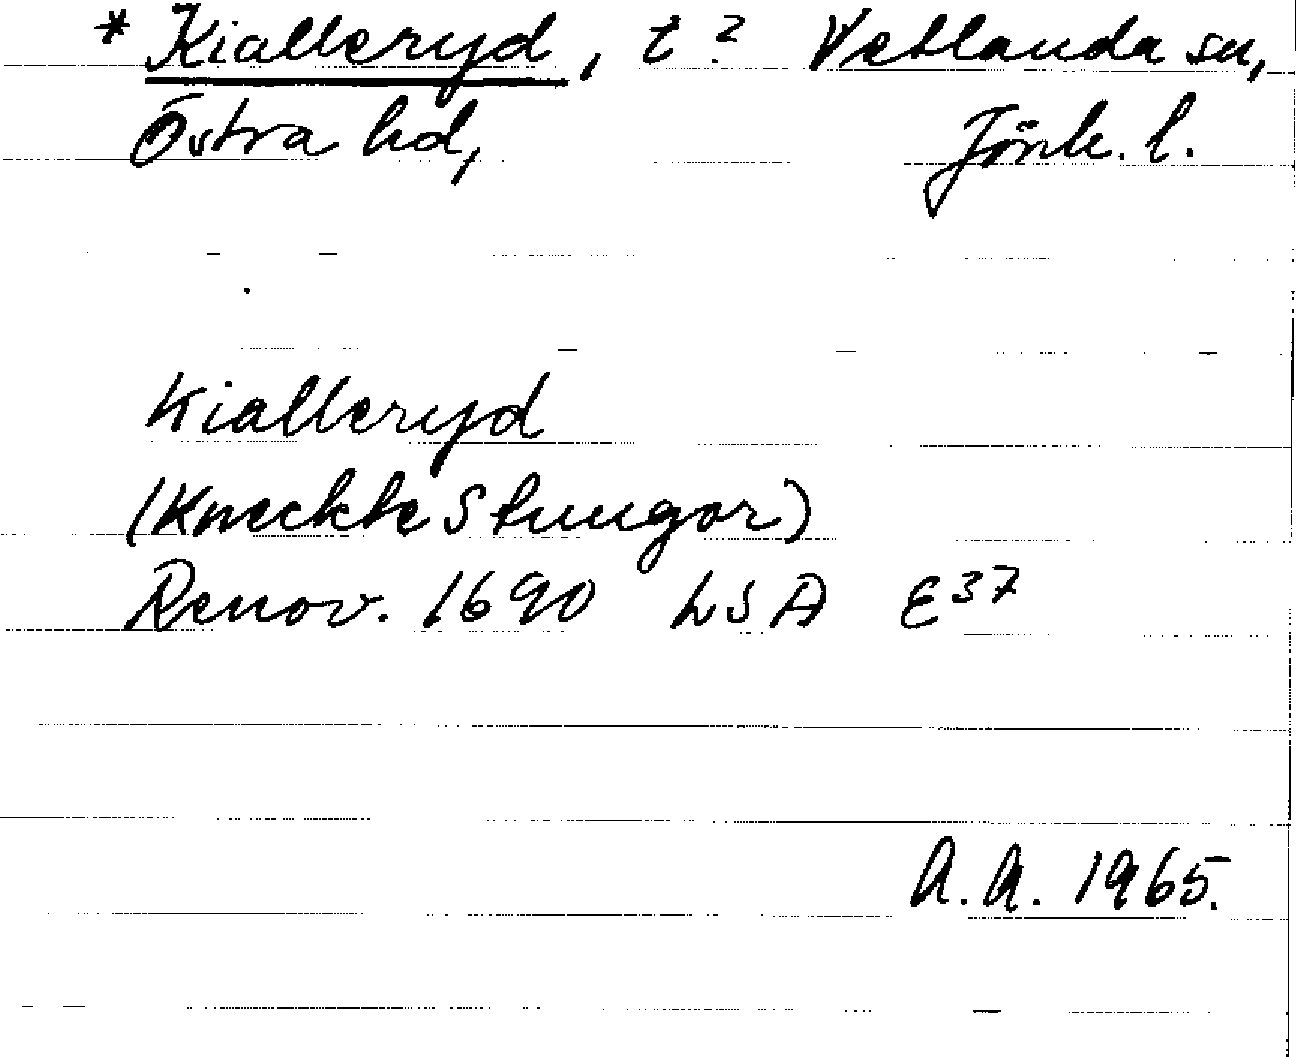 * Kialleryd, t? Vetlanda sn,
Östra hd, Jönk. l.
Kialleryd
(Kneckte Stungor)
Renov. 1690 LSA E37
A.A. 1965.